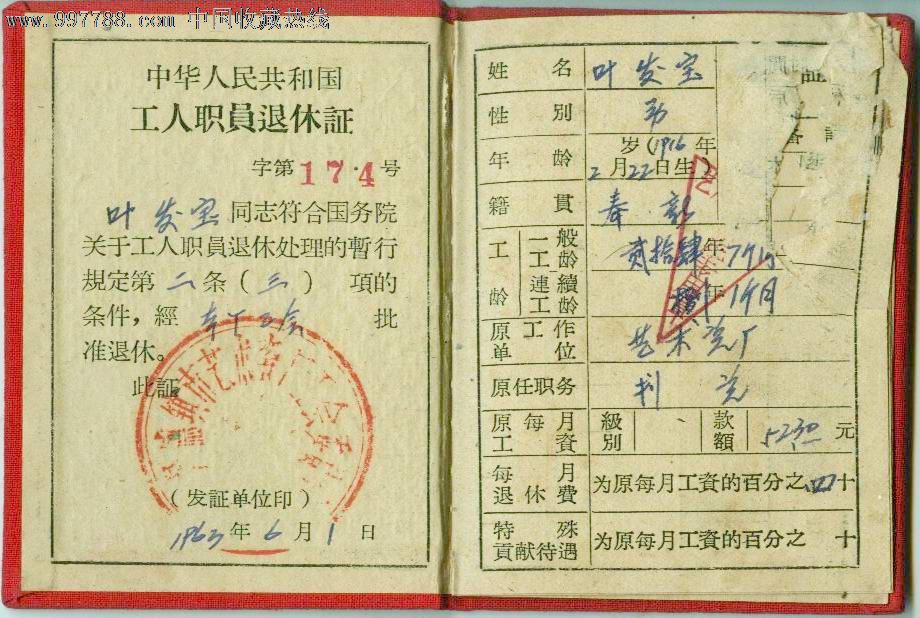 www.997788.com 中国收藏热线
中华人民共和国
工人职員退休証
字第174号
叶发宝同志符合国务院
关于工人职員退休处理的暫行
規定第二条(三)項的
条件，經 批
准退休。
此証
(发証单位印)
1963年6月1日
姓名 叶发宝
性别 男
年龄 岁(1916年
2月22日生)
籍貫 奉新
工龄 一般工龄 贰拾肆年7个月
連續工龄 年1个月
原工作单位 艺术瓷厂
原任职务 利瓷
原每月工資 級别 款額 5230元
每月退休費 为原每月工資的百分之四十
特殊貢献待遇 为原每月工資的百分之 十